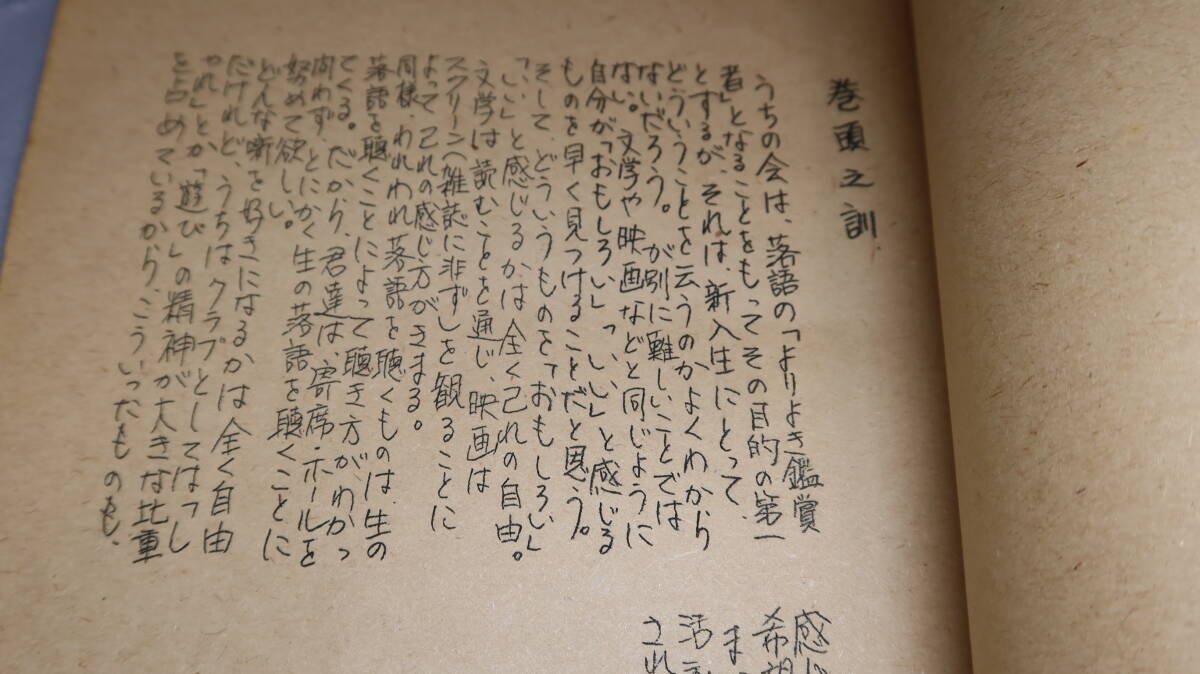 巻頭之訓
うちの会は、落語の「よりよき鑑賞
者」となることをもってその目的の第一
とするが、それは、新入生にとって、
どういうことを云うのかよくわから
ないだろう。が別に難しいことでは
ない。文学や映画などと同じように
自分が「おもしろい」「いい」と感じる
ものを早く見つけることだと思う。
そして、どういうものを「おもしろい」
「いい」と感じるかは全く己れの自由。
文学は読むことを通じ、映画は
スクリーン(雑誌に非ず)を観ることに
よって己れの感じ方がきまる。
同様、われわれ落語を聴くものは、生の
落語を聴くことによって聴き方がわかっ
てくる。だから、君達は、寄席・ホールを
問わず、とにかく生の落語を聴くことに
努めて欲しい。
どんな噺を好きになるかは全く自由
だけれど、うちはクラブとしてはっし
ゃれ」とか「遊び」の精神が大きな比重
を占めているから、こういったものも、
感じ
希望
ま
活
され